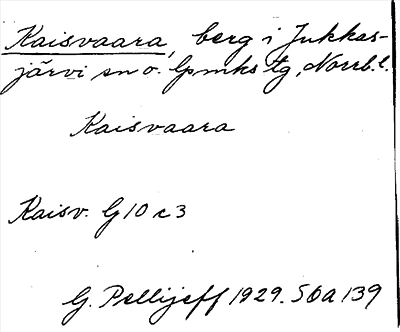 Kaisvaara, berg i Jukkas-
järvi sn o. lpmks tg, Norrb. l.
Kaisvaara
Kaisv. G 10 c 3
G. Pellijeff 1929. S 6a 139